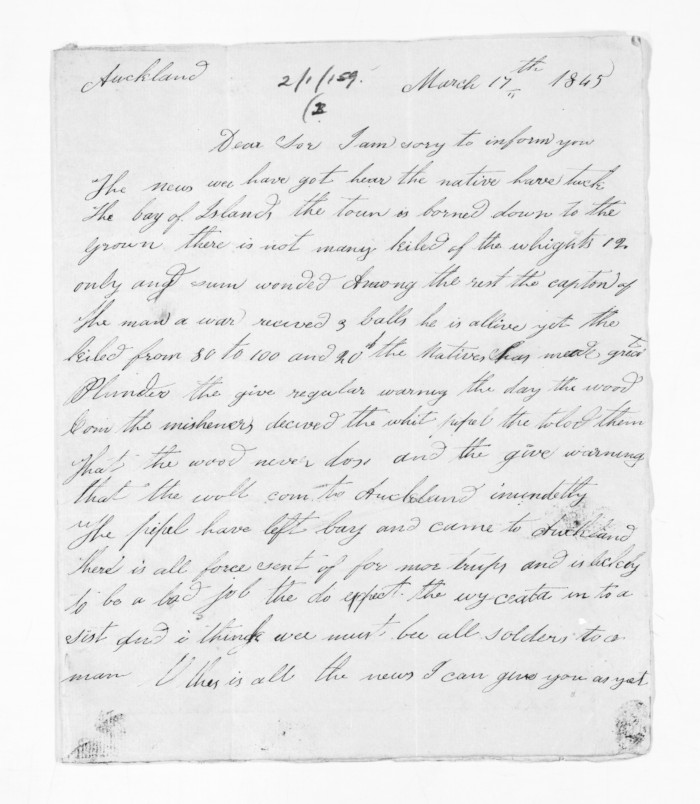 Auckland 2/1/159. March 17th 1845
(2
Dear Sor I am sory to inform you
The news wee have got hear the native have tuck
the bay of Islands the town is borned down to the
grown there is not many kiled of the whights 12
only and sum wonded Among the rest the capton of
the man a war recived 3 balls he is allive yet the
kiled from 80 to 100 and 20 the Natives has made great
Plunder the give regular warning the day the wood
Com the misheners decived the whit pepal the tolod them
that the wood never do so and the give warning
that the woll com to Auckland imundetly
The pepal have left bay and came to Auckland
there is all force sent of for mor trups and is lickely
to be a bad job the do expect the wycata in to a
sist and i think wee must bee all solders to a
man this is all the news I can give you as yet